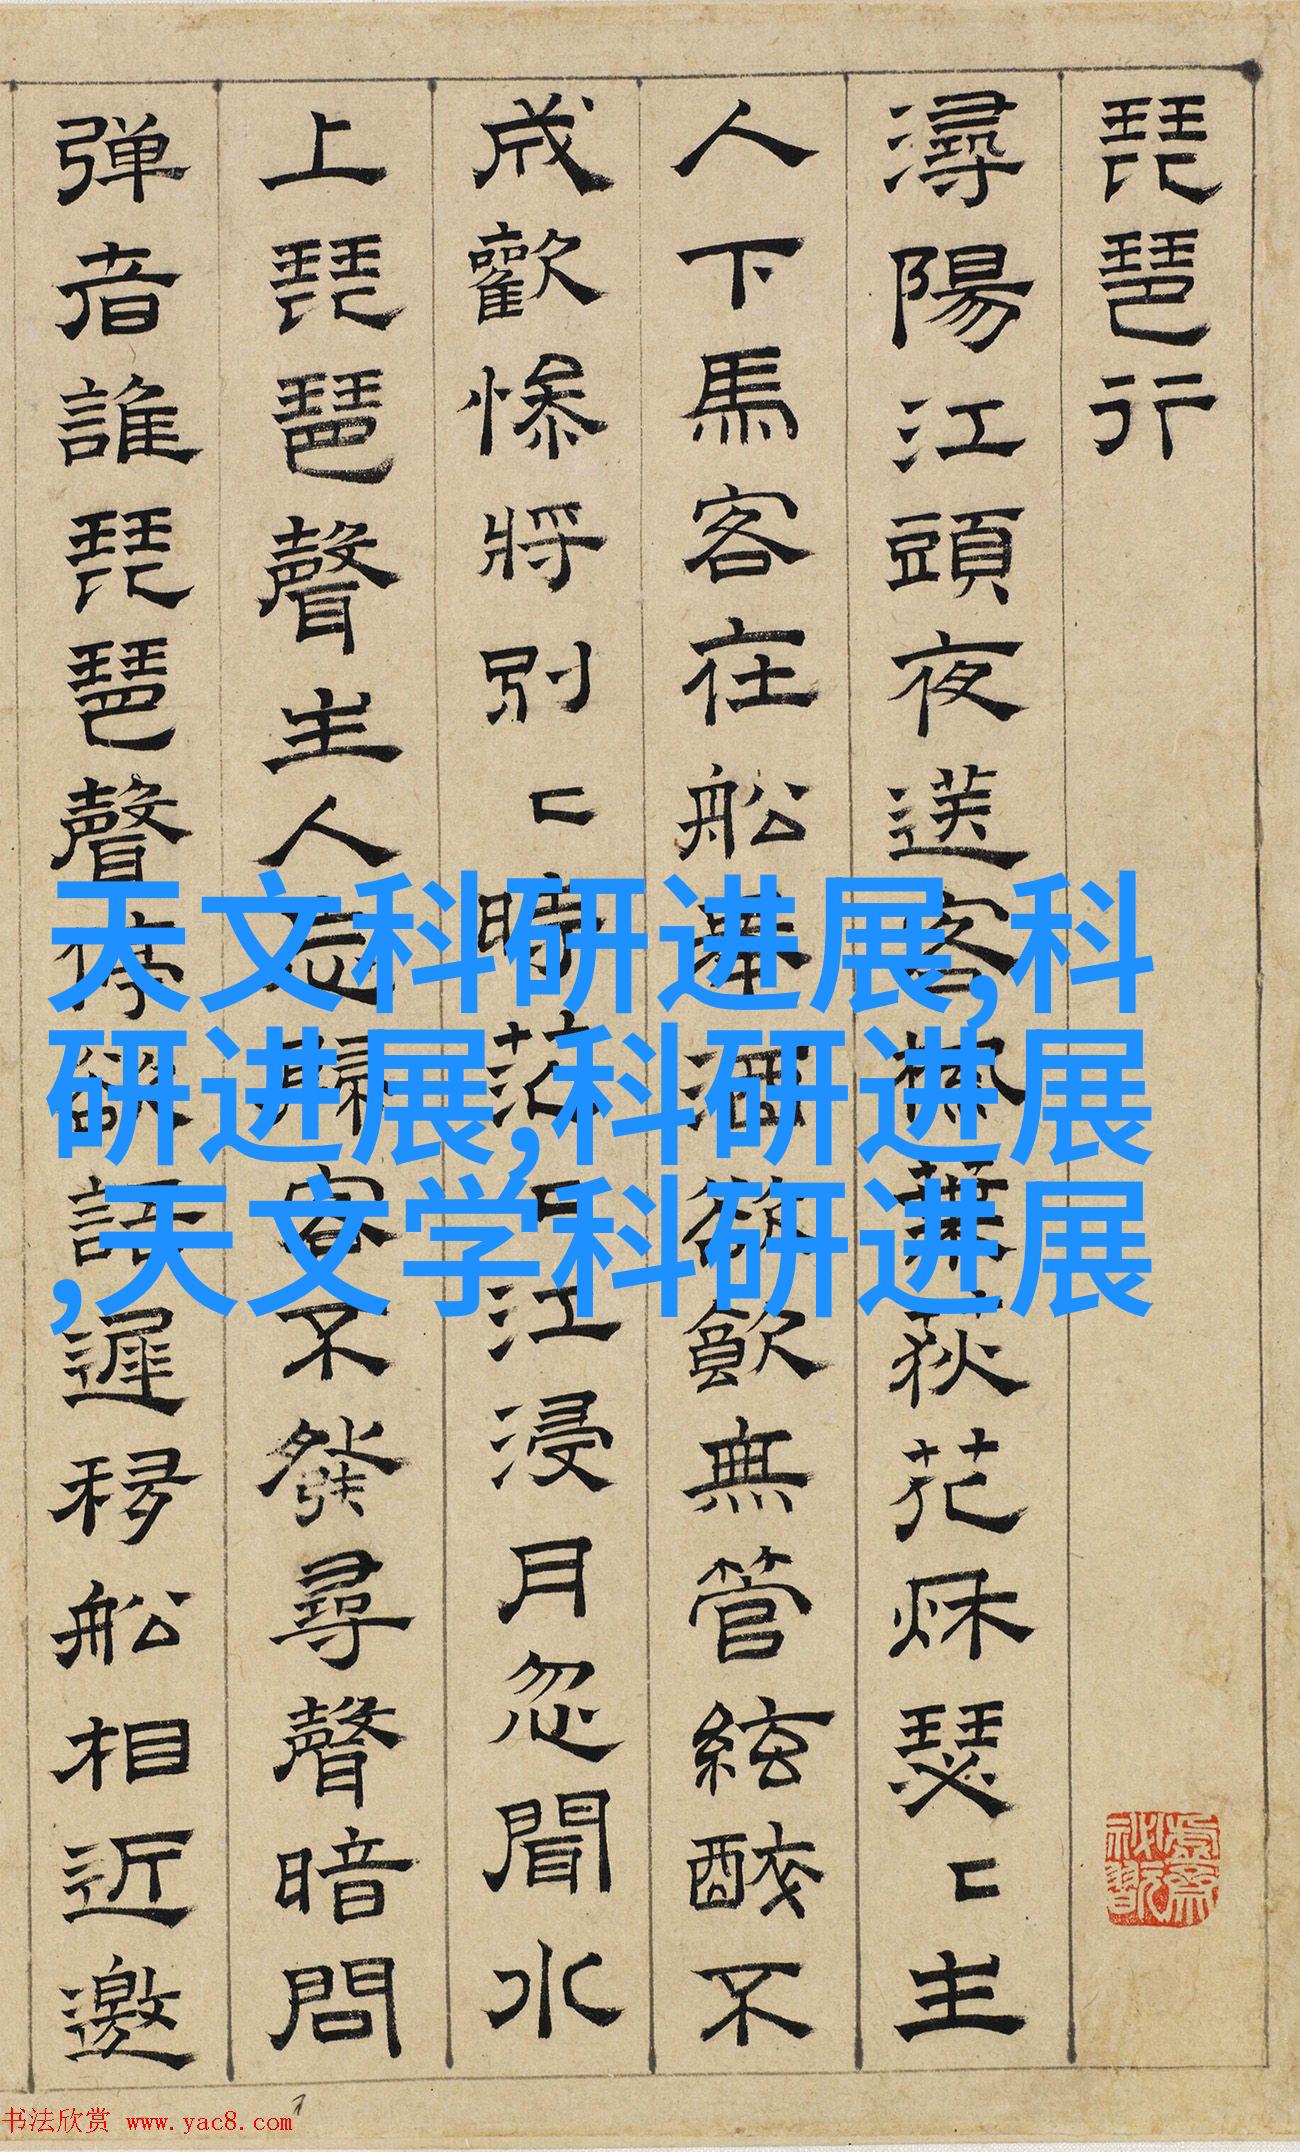 琵琶行
潯陽江頭夜送客楓葉荻花秌瑟〻主
人下馬客在船舉酒欲飲無管絃醉不
成歡慘將別〻時茫〻江浸月忽聞水
上琵琶聲主人忘歸客不發尋聲暗問
弹者誰琵琶聲停欲語遲移船相近邀
天文科研进展,科
研进展,科研进展
,天文学科研进展
书法欣赏 www.yac8.com